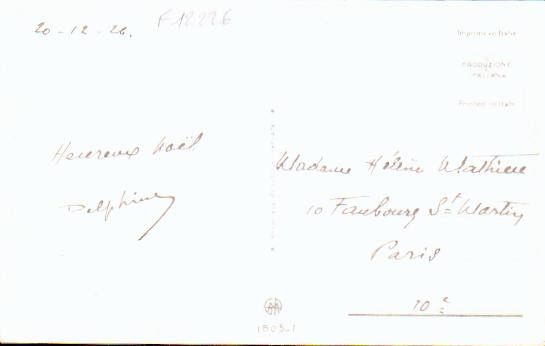 20-12-26.
F12226
Imprimé en Italie
PRODUZIONE
ITALIANA
Printed in Italy
Heureux Noël
Delphine
Madame Hélène Mathieu
10 Faubourg St Martin
Paris
10e
1805-1